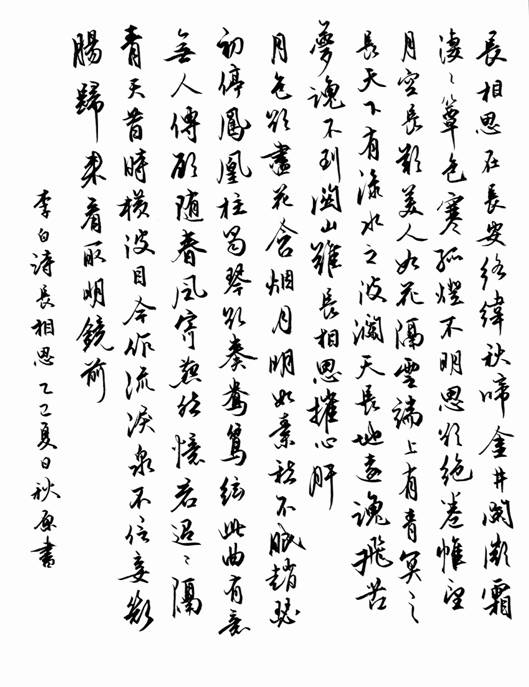 長相思在長安絡緯秋啼金井闌微霜
淒〻簟色寒孤燈不明思欲絕卷帷望
月空長歎美人如花隔雲端上有青冥之
長天下有淥水之波瀾天長地遠魂飛苦
夢魂不到關山難長相思摧心肝
月色欲盡花含烟月明如素愁不眠趙瑟
初停鳳凰柱蜀琴欲奏鴛鴦絃此曲有意
無人傳願隨春風寄燕然憶君迢〻隔
青天昔時橫波目今作流淚泉不信妾斷
腸歸來看取明鏡前
李白詩長相思乙巳夏日秋原書